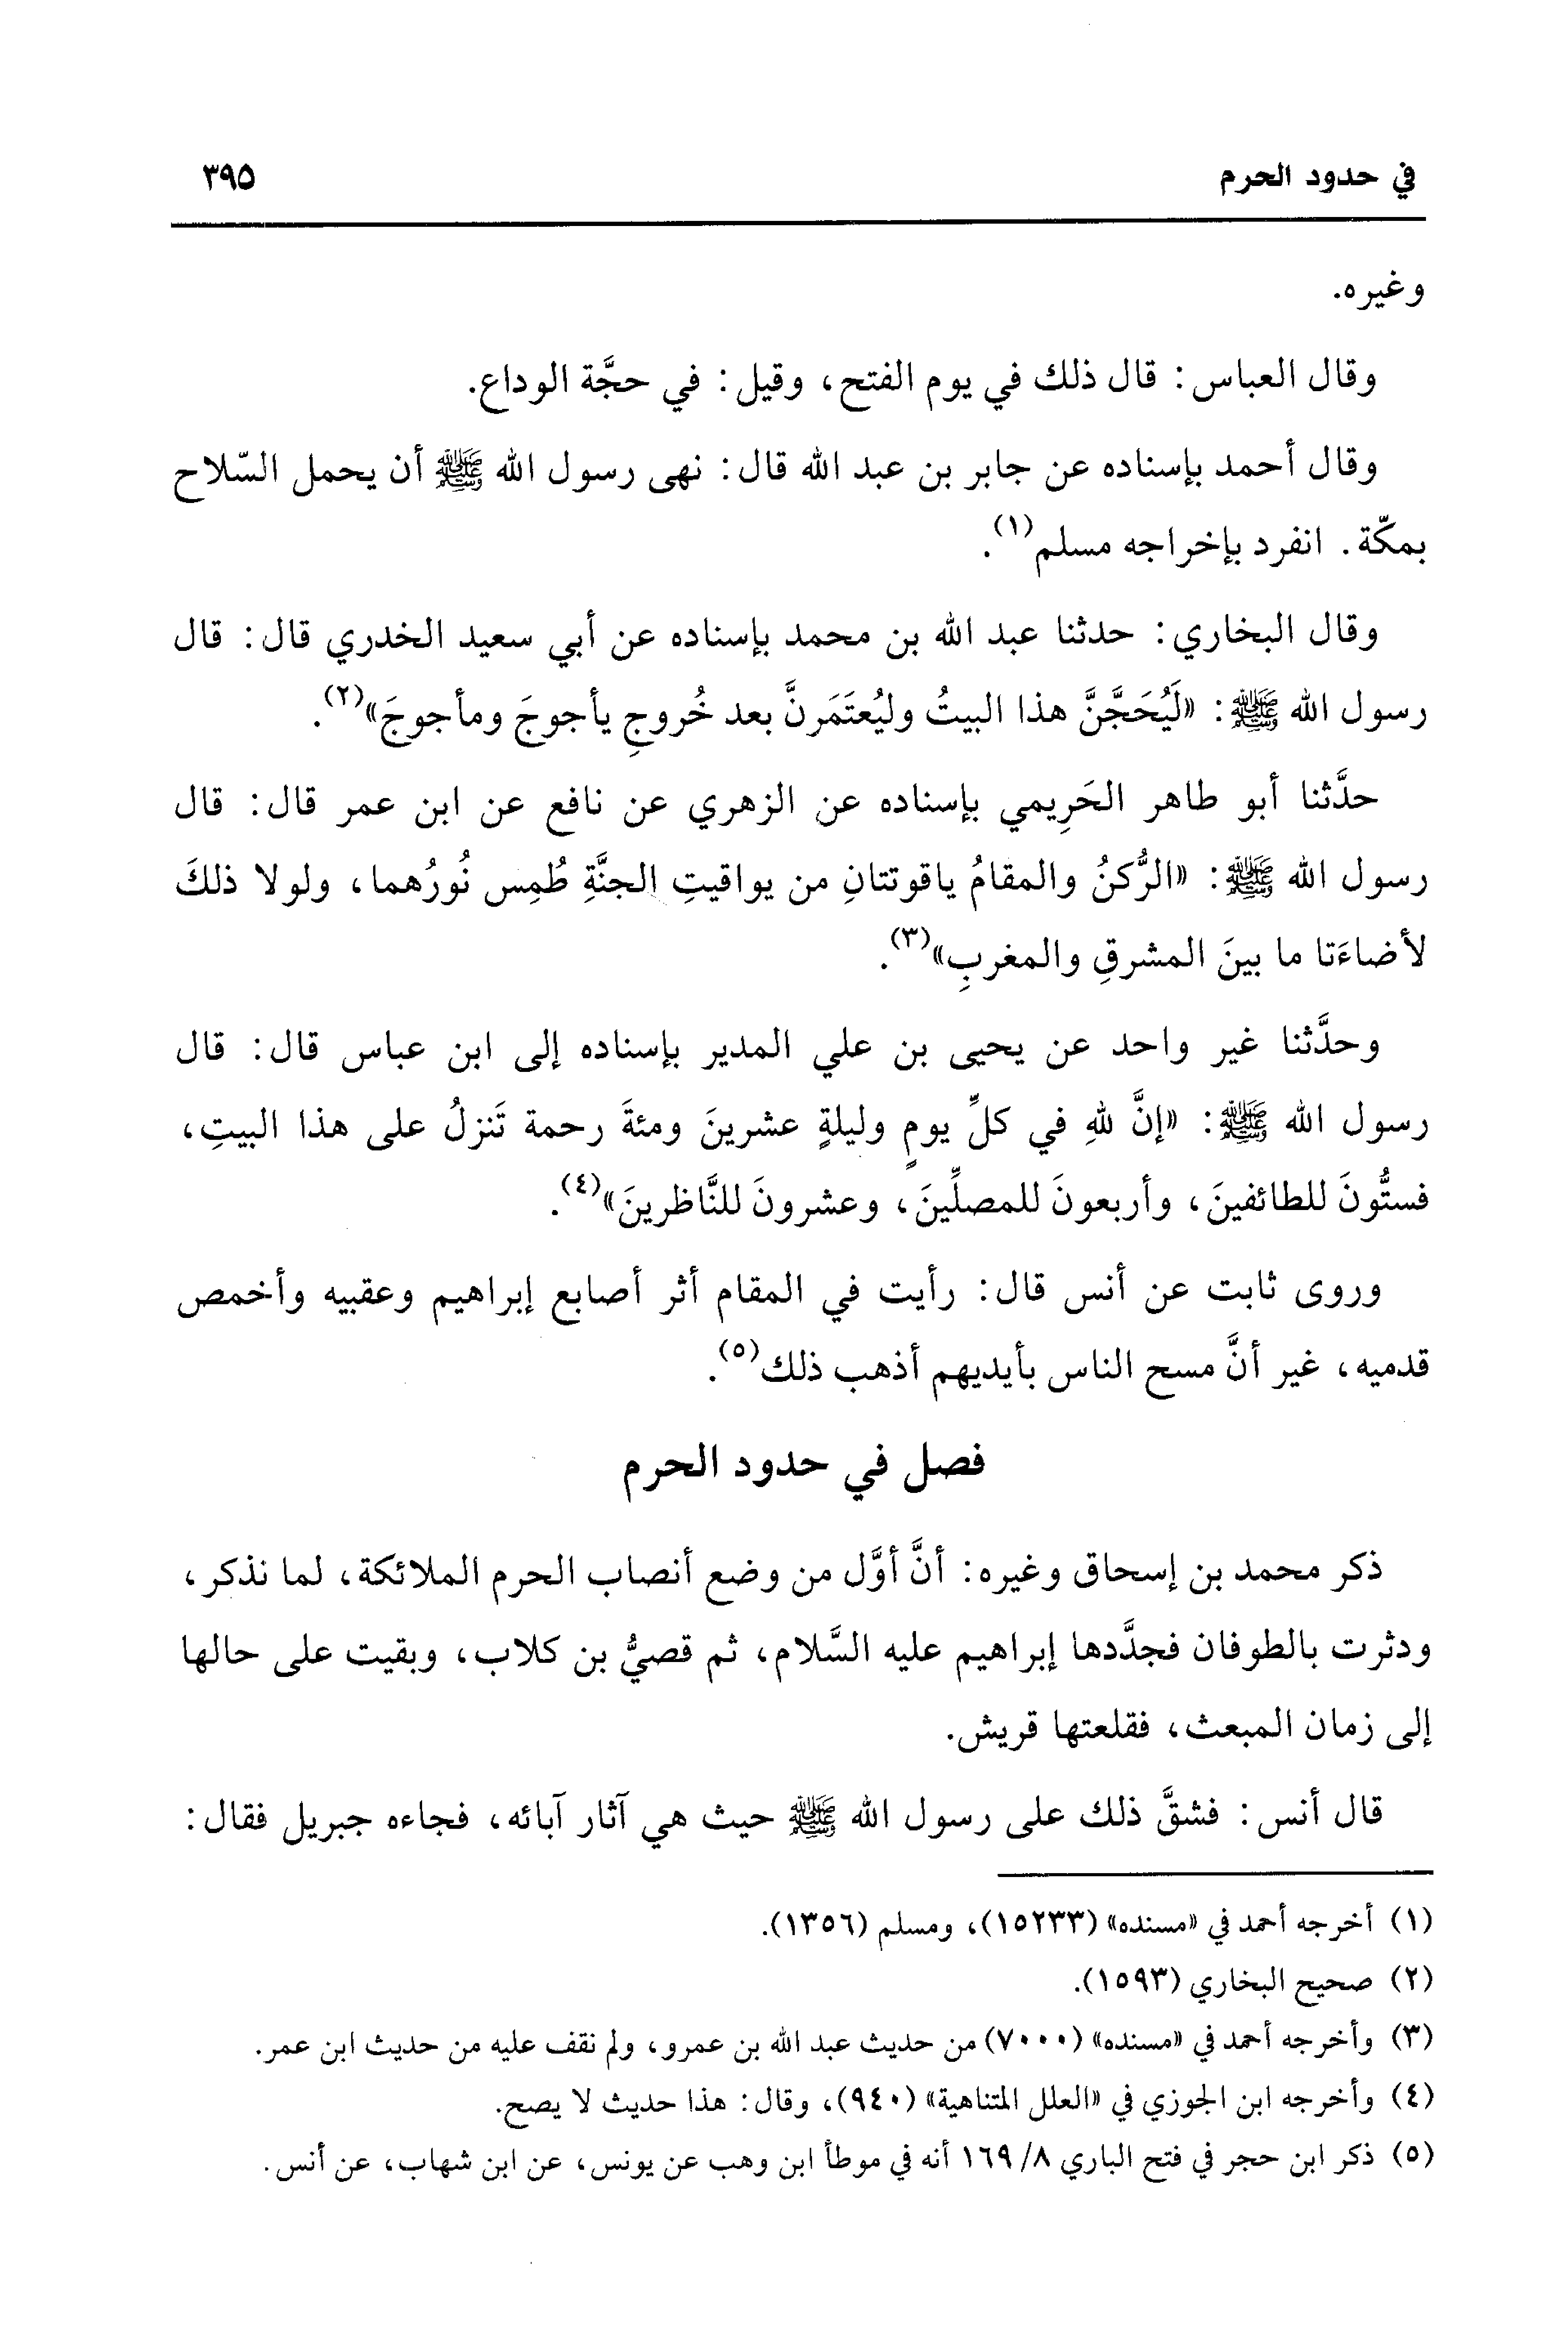 في حدود الحرم ٣٩٥
وغيره.
وقال العباس: قال ذلك في يوم الفتح، وقيل: في حجَّة الوداع.
وقال أحمد بإسناده عن جابر بن عبد الله قال: نهى رسول الله ﷺ أن يحمل السّلاح
بمكّة. انفرد بإخراجه مسلم(١).
وقال البخاري: حدثنا عبد الله بن محمد بإسناده عن أبي سعيد الخدري قال: قال
رسول الله ﷺ: «لَيُحَجَّنَّ هذا البيتُ وليُعتَمَرنَّ بعد خُروجِ يأجوجَ ومأجوجَ»(٢).
حدَّثنا أبو طاهر الحَرِيمي بإسناده عن الزهري عن نافع عن ابن عمر قال: قال
رسول الله ﷺ: «الرُّكنُ والمقامُ ياقوتتانِ من يواقيتِ الجنَّةِ طُمِس نُورُهما، ولولا ذلكَ
لأضاءَتا ما بينَ المشرقِ والمغربِ»(٣).
وحدَّثنا غير واحد عن يحيى بن علي المدير بإسناده إلى ابن عباس قال: قال
رسول الله ﷺ: «إنَّ للهِ في كلِّ يومٍ وليلةٍ عشرينَ ومئةَ رحمة تَنزلُ على هذا البيتِ،
فستُّونَ للطائفينَ، وأربعونَ للمصلِّينَ، وعشرونَ للنَّاظرينَ»(٤).
وروى ثابت عن أنس قال: رأيت في المقام أثر أصابع إبراهيم وعقبيه وأخمص
قدميه، غير أنَّ مسح الناس بأيديهم أذهب ذلك(٥).
فصل في حدود الحرم
ذكر محمد بن إسحاق وغيره: أنَّ أوَّل من وضع أنصاب الحرم الملائكة، لما نذكر،
ودثرت بالطوفان فجدَّدها إبراهيم عليه السَّلام، ثم قصيُّ بن كلاب، وبقيت على حالها
إلى زمان المبعث، فقلعتها قريش.
قال أنس: فشقَّ ذلك على رسول الله ﷺ حيث هي آثار آبائه، فجاءه جبريل فقال:
(١) أخرجه أحمد في «مسنده» (١٥٢٣٣)، ومسلم (١٣٥٦).
(٢) صحيح البخاري (١٥٩٣).
(٣) وأخرجه أحمد في «مسنده» (٧٠٠٠) من حديث عبد الله بن عمرو، ولم نقف عليه من حديث ابن عمر.
(٤) وأخرجه ابن الجوزي في «العلل المتناهية» (٩٤٠)، وقال: هذا حديث لا يصح.
(٥) ذكر ابن حجر في فتح الباري ٨/ ١٦٩ أنه في موطأ ابن وهب عن يونس، عن ابن شهاب، عن أنس.